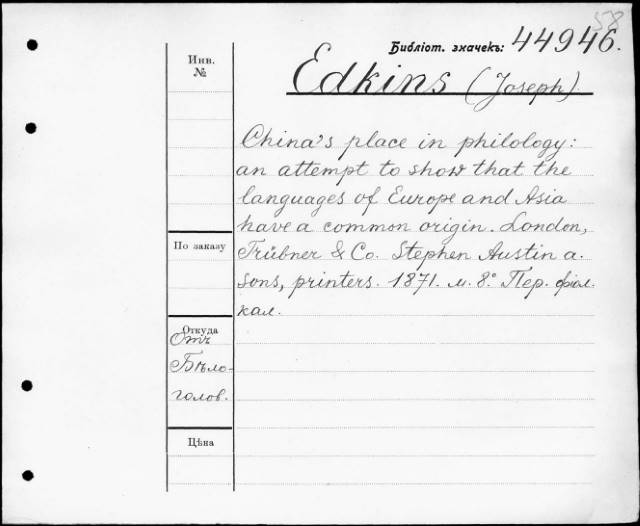 58
Библіот. значекъ: 44946.
Инв.
№
Edkins (Joseph).
China's place in philology:
an attempt to show that the
languages of Europe and Asia
have a common origin. London,
Trübner & Co. Stephen Austin a.
sons, printers. 1871. м. 8.° Пер. фіол.
кал.
По заказу
Откуда
Отъ
Бѣло-
голов.
Цѣна